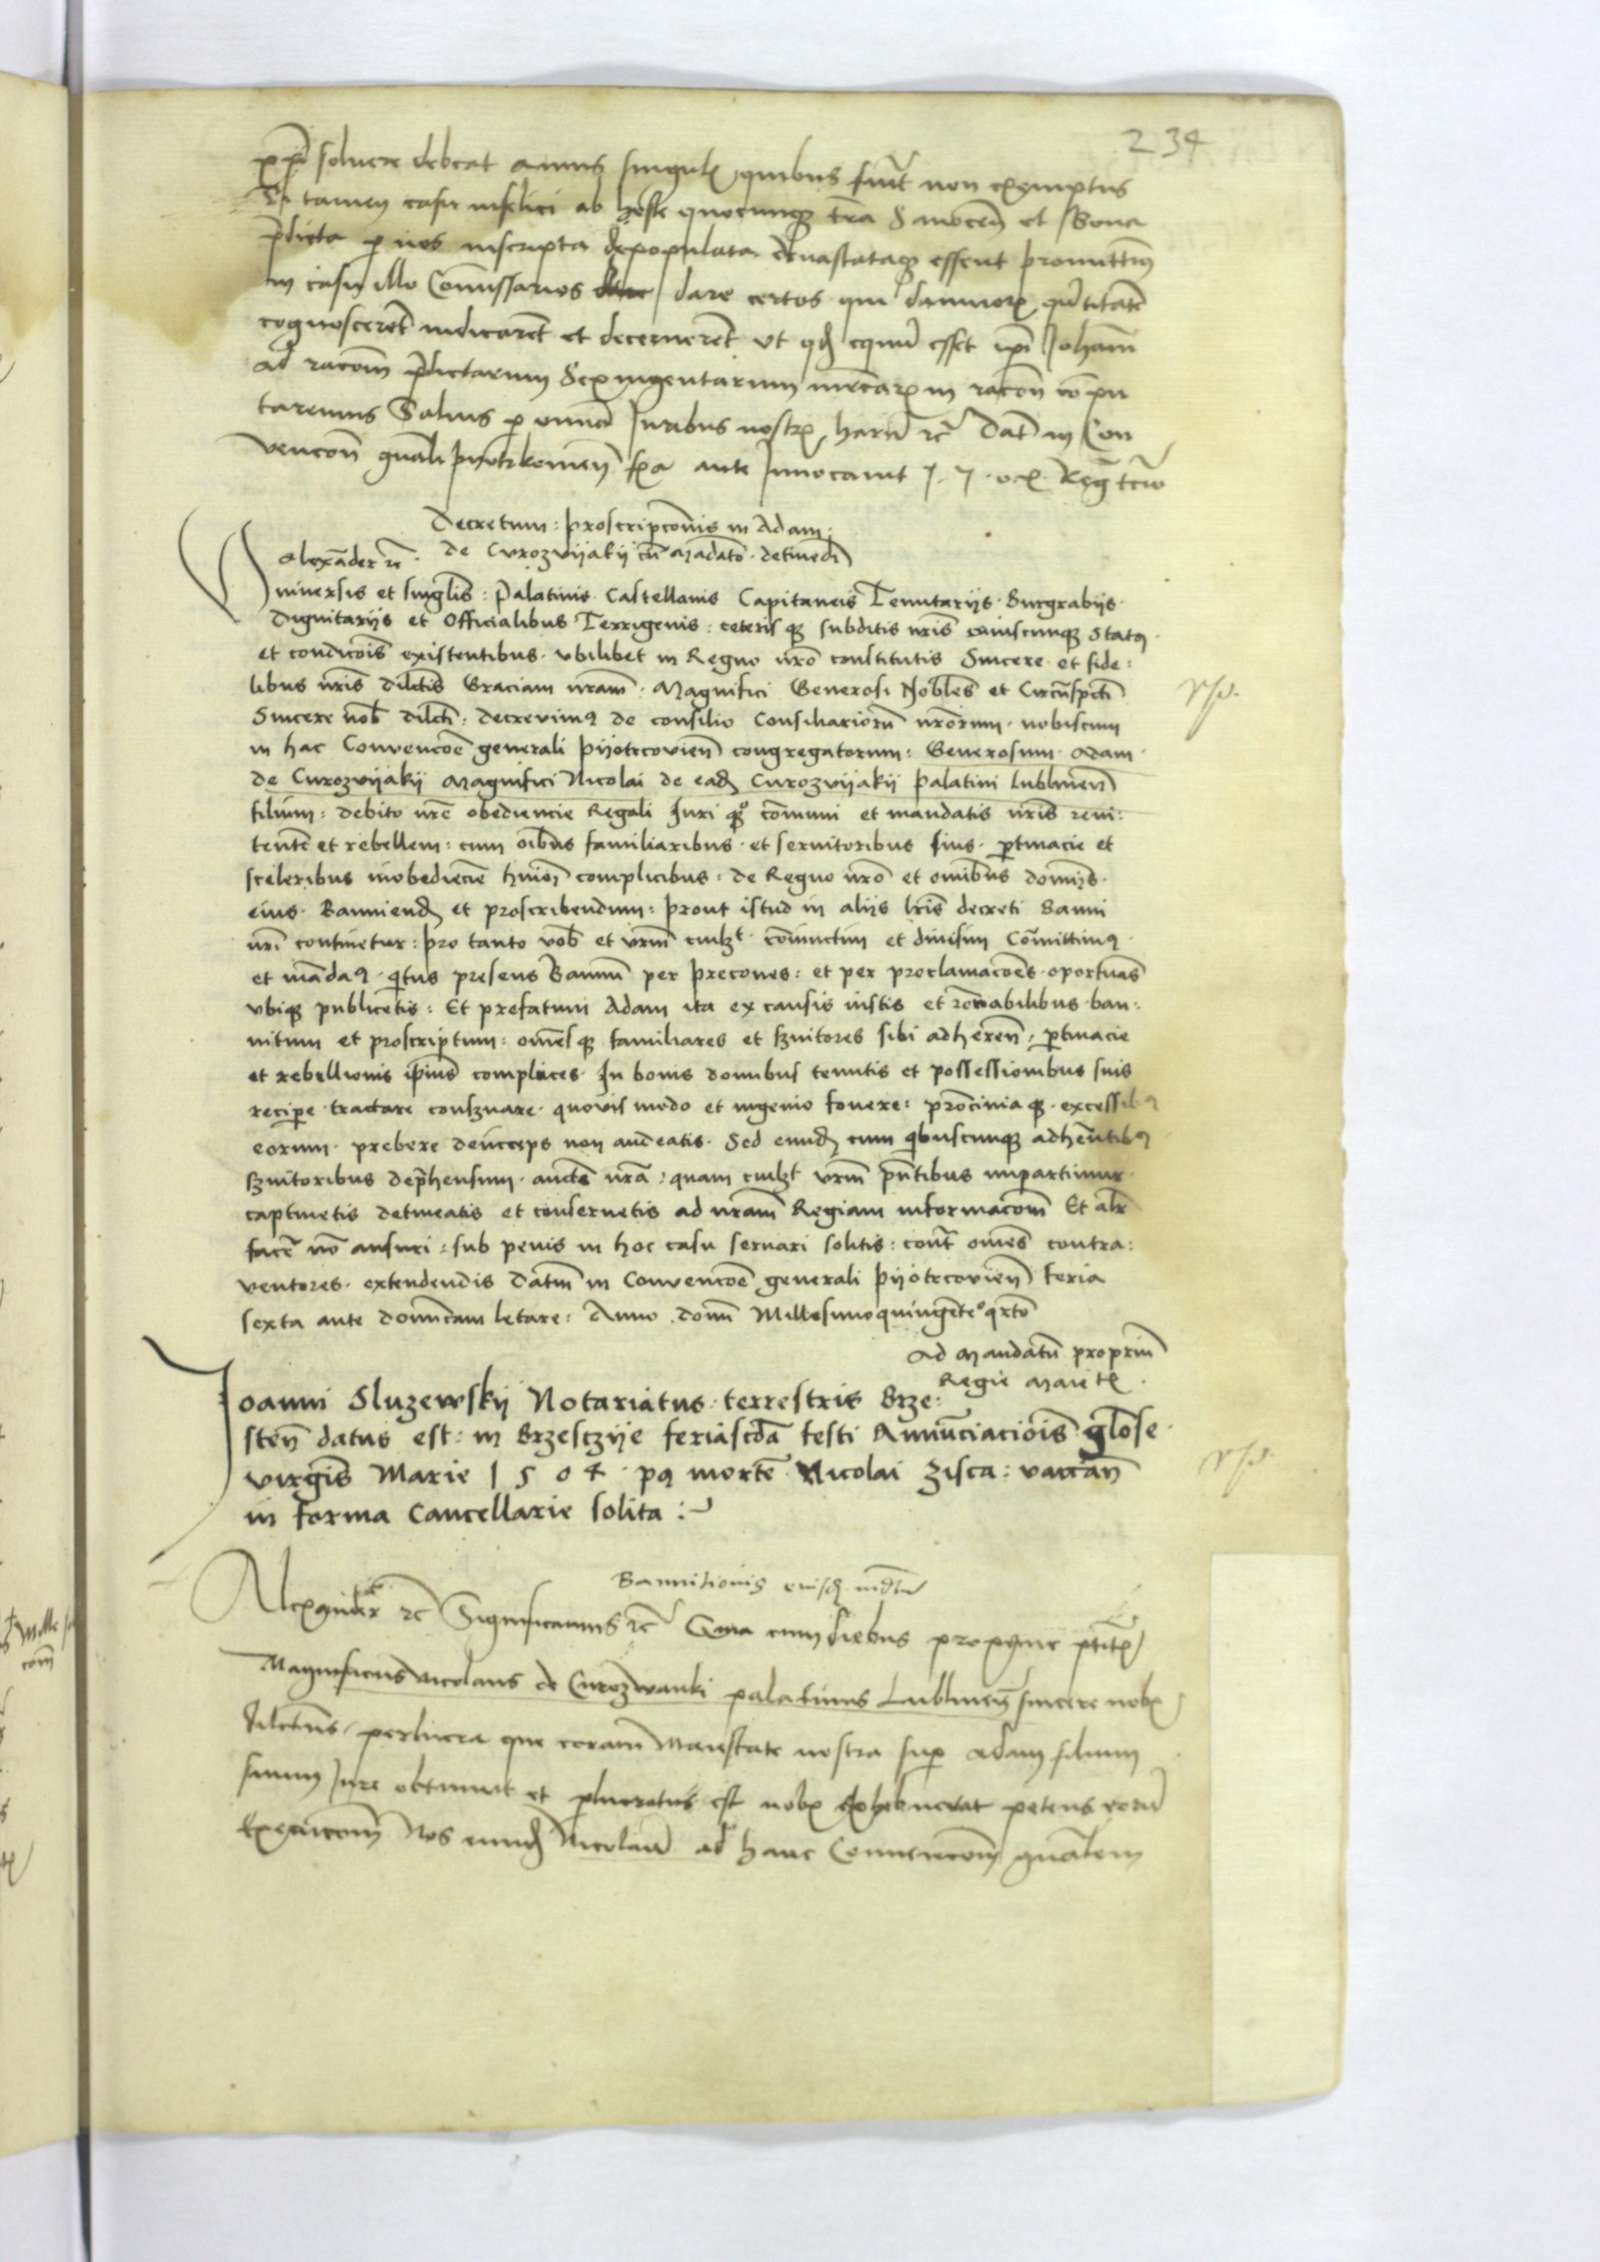 234
solvere debeat annis singulis quibus fuerit non exemptus
Si tamen casu infelici ab hoste quocunque terra Sanocen et Bona
predicta per nos inscripta depopulata devastataque essent promittimus
in casu illo Comissarios dare certos qui damnorum quantitatem
cognoscerent iudicarent et decernerent ut quod equum esset ipsi Johanni
ad racom predictarum Sexingentarum marcarum in racom compu
taremus Salvis per omnia Iuribus nostris harum etc Dat in Con
vencon gnali Pyotrkovien ante Invocavit
Decretum : proscripconis in Adam
de Curozvijakij cu mandato detinedi
Alexander etc
Universis et singlis : Palatinis Castellanis Capitaneis Tenutarijs Burgrabijs
Dignitarijs et Officialibus Terrigenis : ceterisque subditis nris cuiuscunque status
et condicois existentibus ubilibet in Regno nro constitutis Sincere et fide:
libus nris dilctis Graciam nram. Magnifici Generosi Nobles et Circuspcti
Sincere nob dilcti : decrevimus de consilio Consiliariorum nrorum nobiscum
in hac Convencoe generali pijotrcovien congregatorum : Generosum Adam
de Curozvijakij Magnifici Nicolai de eadem Curozvijakij Palatini Lublinen
filium : debito nre obediencie Regali Iuri quoque comuni et mandatis nris reni:
tente et rebellem : cum oibus familiaribus et servitoribus suis pertinacie et
sceleribus inobediecie huiusmodi complicibus : de Regno nro et omibus dominijs
eius Banniendum et proscribendum : prout istud in alijs lris decreti Banni
nri continetur : pro tanto vob et vrum cuilibet coniunctim et divisim Comittimus
et mandamus quatenus presens Bannum per precones : et per proclamacoes oportunas
ubique publicetis : Et prefatum Adam ita ex causis iustis et rонabilibus ban:
nitum et proscriptum : omesque familiares et servitores sibi adheren, pertinacie
et rebellionis ipsius complices In bonis domibus tenutis et possessionibus suis
recipe tractare conservare quovis modo et ingenio fovere : patrocinia que excessibus
eorum prebere deinceps non audeatis Sed eundem cum quibuscunque adherentibus
servitoribus deprehensum aucte nra : quam cuilibet vrum pntibus impartimur
captivetis detineatis et conservetis ad nram Regiam informacom Et alr
facere no ausuri : sub penis in hoc casu servari solitis : cont omes contra:
ventores extendendis Datum in Convencoe generali pijotrcovien feria
sexta ante dominicam letare : Anno domi Millesimoquingentesimo qrto
Ad Mandatum proprium
Regie Maietis
Joanni Sluzewskij Notariatus terrestris Brze:
sten datus est : in Brzesczije feria scda festi Annunciaciois glose
virginis Marie 1504 post morte Nicolai Zisca : vacan
in forma Cancellarie solita :
Bannitionis eiusdem
Alexander etc Significamus etc Quia cum diebus proxime preteritis
Magnificus Nicolaus de Curozwanki palatinus Lublinen sincere nobis
dilectus, que coram Maiestate nostra super Adam filium
suum Jure obtinuit et est nobis exhibuerat petens eorum
Execucom Nos eundem Nicolaum ad hanc Convencom gnalem